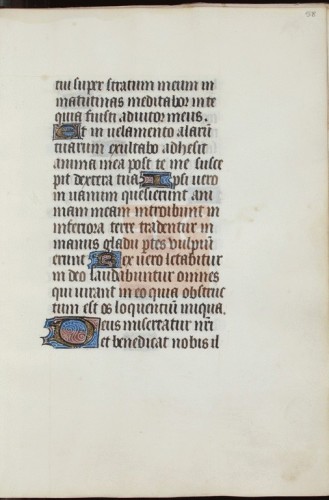 58
tui super stratum meum in
matutinas meditabor in te
quia fuisti adiutor meus.
Et in uelamento alarū
tuarum exultabo adhesit
anima mea post te me susce
pit dextera tua Ipsi uero
in uanum quesierunt ani
mam meam introibunt in
inferiora terre tradentur in
manus gladii ptes vulpiū
erunt Rex uero letabitur
in deo laudabuntur omnes
qui iurant in eo quia obstruc
tum est os loquentiū iniqua.
Deus misereatur nr̄i
et benedicat nobis il